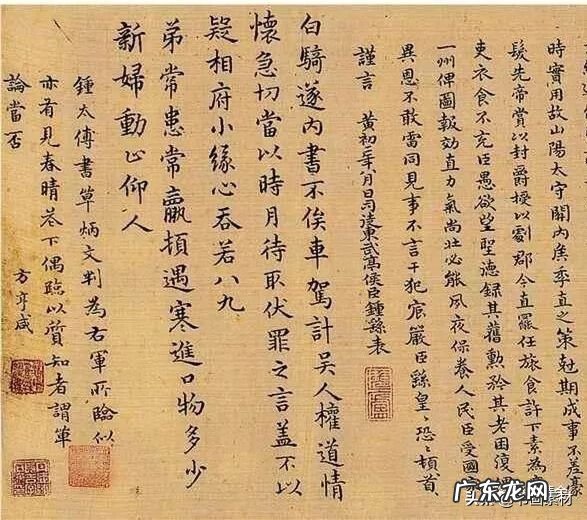 時實用故山陽太守關內侯季直之策尅期成事不差豪
髮先帝賞以封爵授以劇郡今直罷任旅食許下素為
吏衣食不充臣愚欲望聖德録其舊勲矜其老困復
一州俾圖報效直力氣尚壯必能夙夜保養人民臣受國
異恩不敢雷同見事不言干犯宸嚴臣繇皇〻恐〻頓首
謹言 黃初二年八月日司徒東武亭侯臣鍾繇表
白騎遂內書不俟車駕計吳人權道情
懷急切當以時月待取伏罪之言盖不以
疑相府小緣心吞若八九
弟常患常羸頓遇寒進口物多少
新婦動止仰人
鍾太傅書草炳文判為右軍所臨似
亦有見春晴花下偶臨以質知者謂筆
論當否
方亨咸
广东龙网